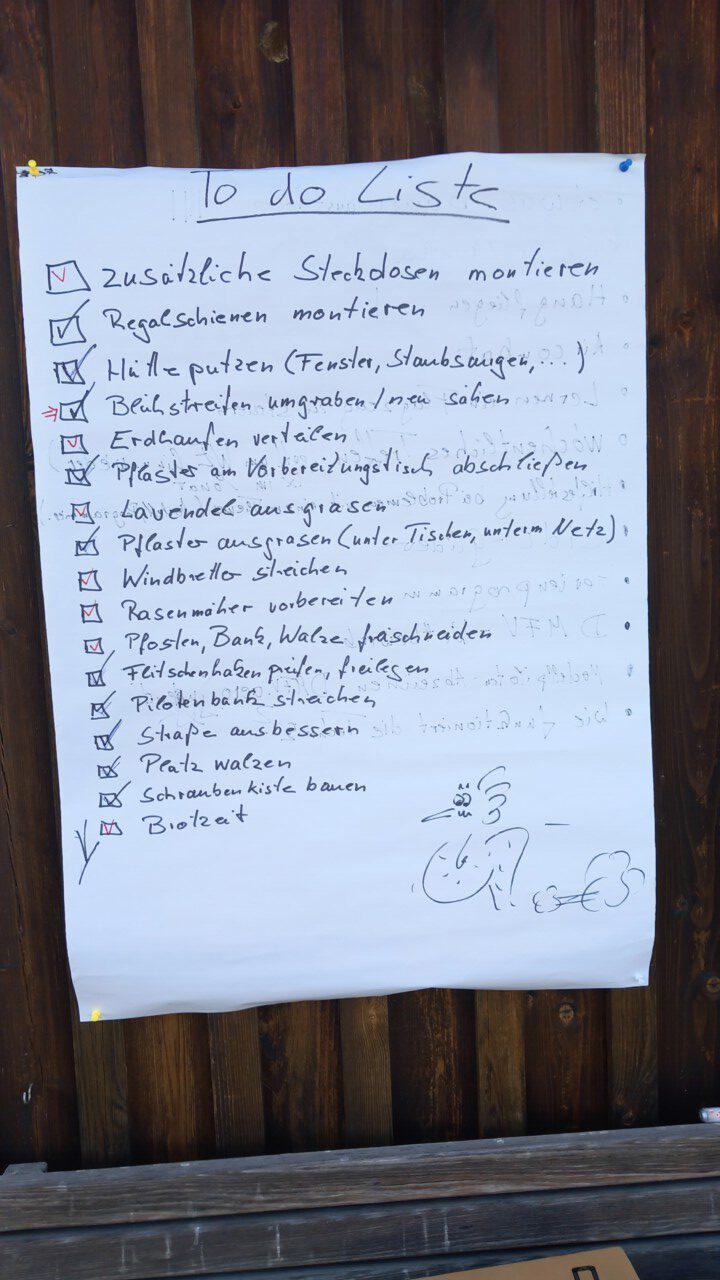 To do Liste
Zusätzliche Steckdosen montieren
Regalschienen montieren
Hütte putzen (Fenster, Staubsaugen, ...)
Blühstreifen umgraben / neu sähen
Erdhaufen verteilen
Pflaster am Vorbereitungstisch abschließen
Lavendel ausgrasen
Pflaster ausgrasen (unter Tischen, unterm Netz)
Windbretter streichen
Rasenmäher vorbereiten
Pfosten, Bank, Walze freischneiden
Flitschenhaken prüfen, freilegen
Pilotenbank streichen
Straße ausbessern
Platz walzen
Schraubenkiste bauen
Brotzeit